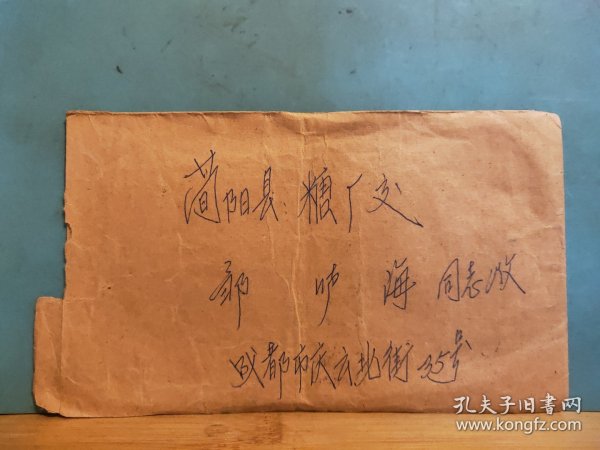 简阳县 糖厂交
海 同志收
成都市庆云北街35号
孔夫子旧書网
www.kongfz.com